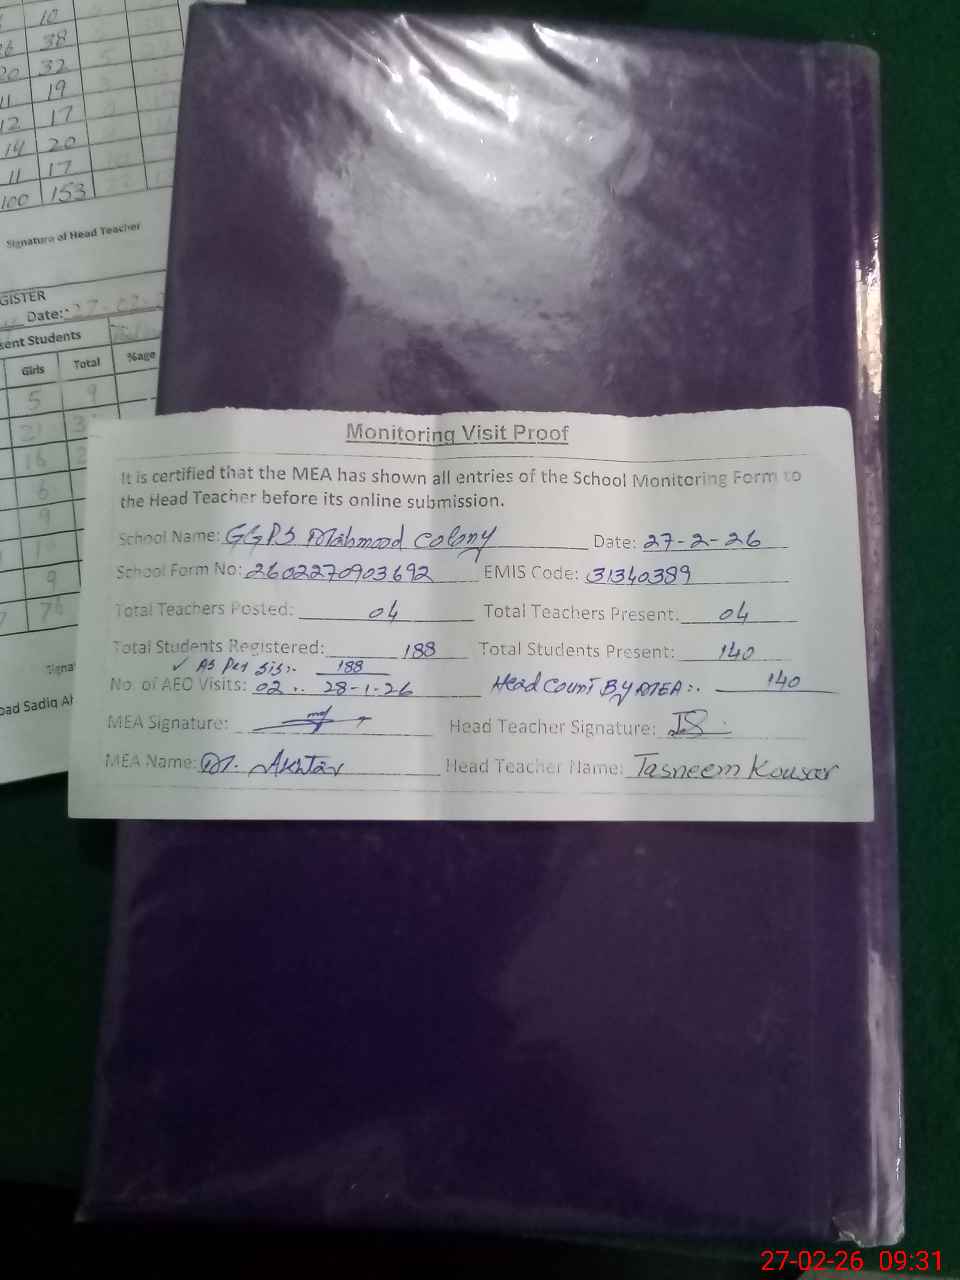 10
38
20 32
11 19
12 17
14 20
11 17
100 153
Signature of Head Teacher
GISTER
Date: 27-02-
sent Students
Girls Total %age
5 9
21
16
6
9
9
Signa
oad Sadiq Al
Monitoring Visit Proof
It is certified that the MEA has shown all entries of the School Monitoring Form to
the Head Teacher before its online submission.
School Name: GGPS Mahmood Colony Date: 27-2-26
School Form No: 2602270903692 EMIS Code: 31340389
Total Teachers Posted: 04 Total Teachers Present: 04
Total Students Registered: 188 Total Students Present: 140
✓ As Per SIS:- 188
No. of AEO Visits: 02 .. 28-1-26 Head Count By MEA:. 140
MEA Signature: Head Teacher Signature:
MEA Name: M. Akhtar Head Teacher Name: Tasneem Kousar
27-02-26 09:31